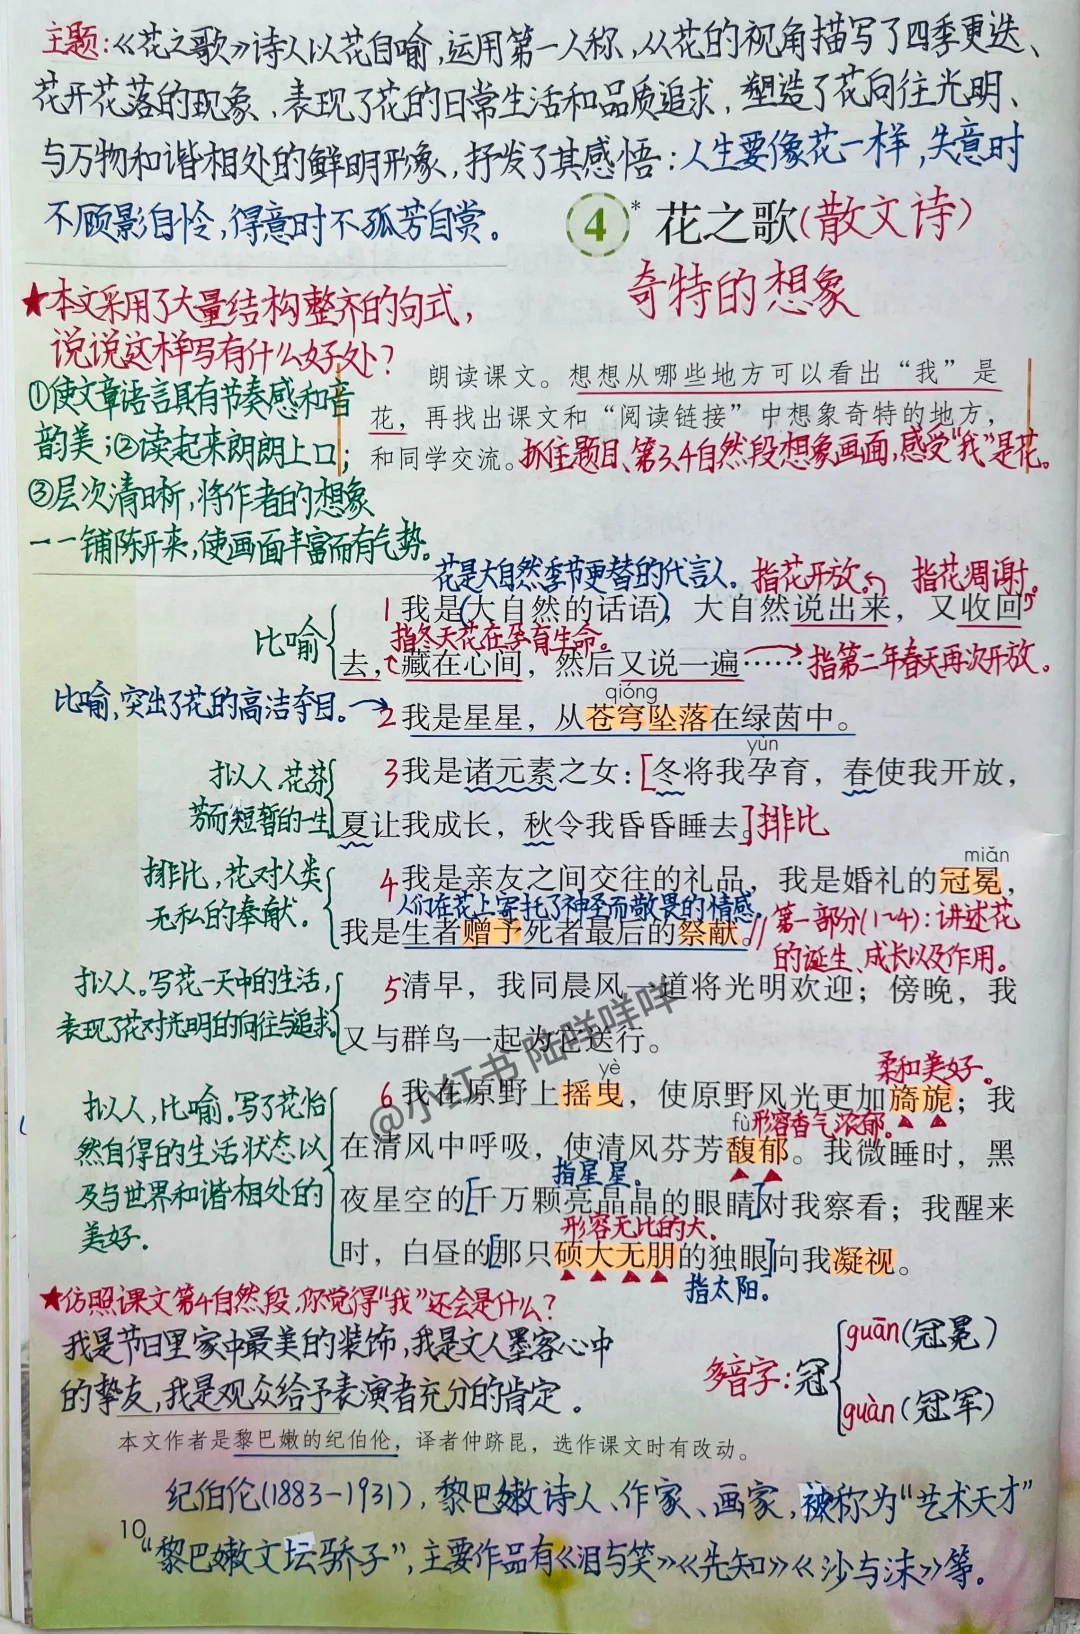 主题:《花之歌》诗人以花自喻,运用第一人称,从花的视角描写了四季更迭、
花开花落的现象、表现了花的日常生活和品质追求,塑造了花向往光明、
与万物和谐相处的鲜明形象,抒发了其感悟:人生要像花一样,失意时
不顾影自怜,得意时不孤芳自赏。
4* 花之歌(散文诗)
奇特的想象
★本文采用了大量结构整齐的句式,
说说这样写有什么好处?
①使文章语言具有节奏感和音
韵美;②读起来朗朗上口;
③层次清晰,将作者的想象
一一铺陈开来,使画面丰富而有气势。
朗读课文。想想从哪些地方可以看出“我”是
花,再找出课文和“阅读链接”中想象奇特的地方,
和同学交流。抓住题目、第3、4自然段想象画面,感受“我”是花。
花是大自然季节更替的代言人。 指花开放。 指花凋谢。
1 我是(大自然的话语),大自然说出来,又收回
比喻
指冬天花在孕育生命。
去,藏在心间,然后又说一遍……指第二年春天再次开放。
比喻,突出了花的高洁夺目。
qióng
2 我是星星,从苍穹坠落在绿茵中。
yùn
拟人,花芬
芳而短暂的一生
3 我是诸元素之女:[冬将我孕育,春使我开放,
夏让我成长,秋令我昏昏睡去。]排比
miǎn
排比,花对人类
无私的奉献.
4 我是亲友之间交往的礼品,我是婚礼的冠冕,
人们在花上寄托了神圣而敬畏的情感。
我是生者赠予死者最后的祭献。//
第一部分(1~4):讲述花
的诞生、成长以及作用。
拟人。写花一天中的生活,
表现了花对光明的向往与追求.
5 清早,我同晨风一道将光明欢迎;傍晚,我
又与群鸟一起为它送行。
柔和美好。
yè
拟人,比喻.写了花怡
然自得的生活状态以
及与世界和谐相处的
美好.
6 我在原野上摇曳,使原野风光更加旖旎;我
fù 形容香气浓郁.
在清风中呼吸,使清风芬芳馥郁。我微睡时,黑
指星星.
夜星空的[千万颗亮晶晶的眼睛]对我察看;我醒来
形容无比的大.
时,白昼的[那只硕大无朋的独眼]向我凝视。
指太阳。
@小红书 陆咩咩咩
★仿照课文第4自然段,你觉得“我”还会是什么?
我是节日里家中最美的装饰,我是文人墨客心中
的挚友,我是观众给予表演者充分的肯定。
多音字:冠
guān(冠冕)
guàn(冠军)
本文作者是黎巴嫩的纪伯伦,译者仲跻昆,选作课文时有改动。
纪伯伦(1883-1931),黎巴嫩诗人、作家、画家,被称为“艺术天才”
10
“黎巴嫩文坛骄子”,主要作品有《泪与笑》《先知》《沙与沫》等。